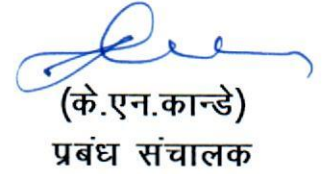 (के.एन.कान्डे)
प्रबंध संचालक